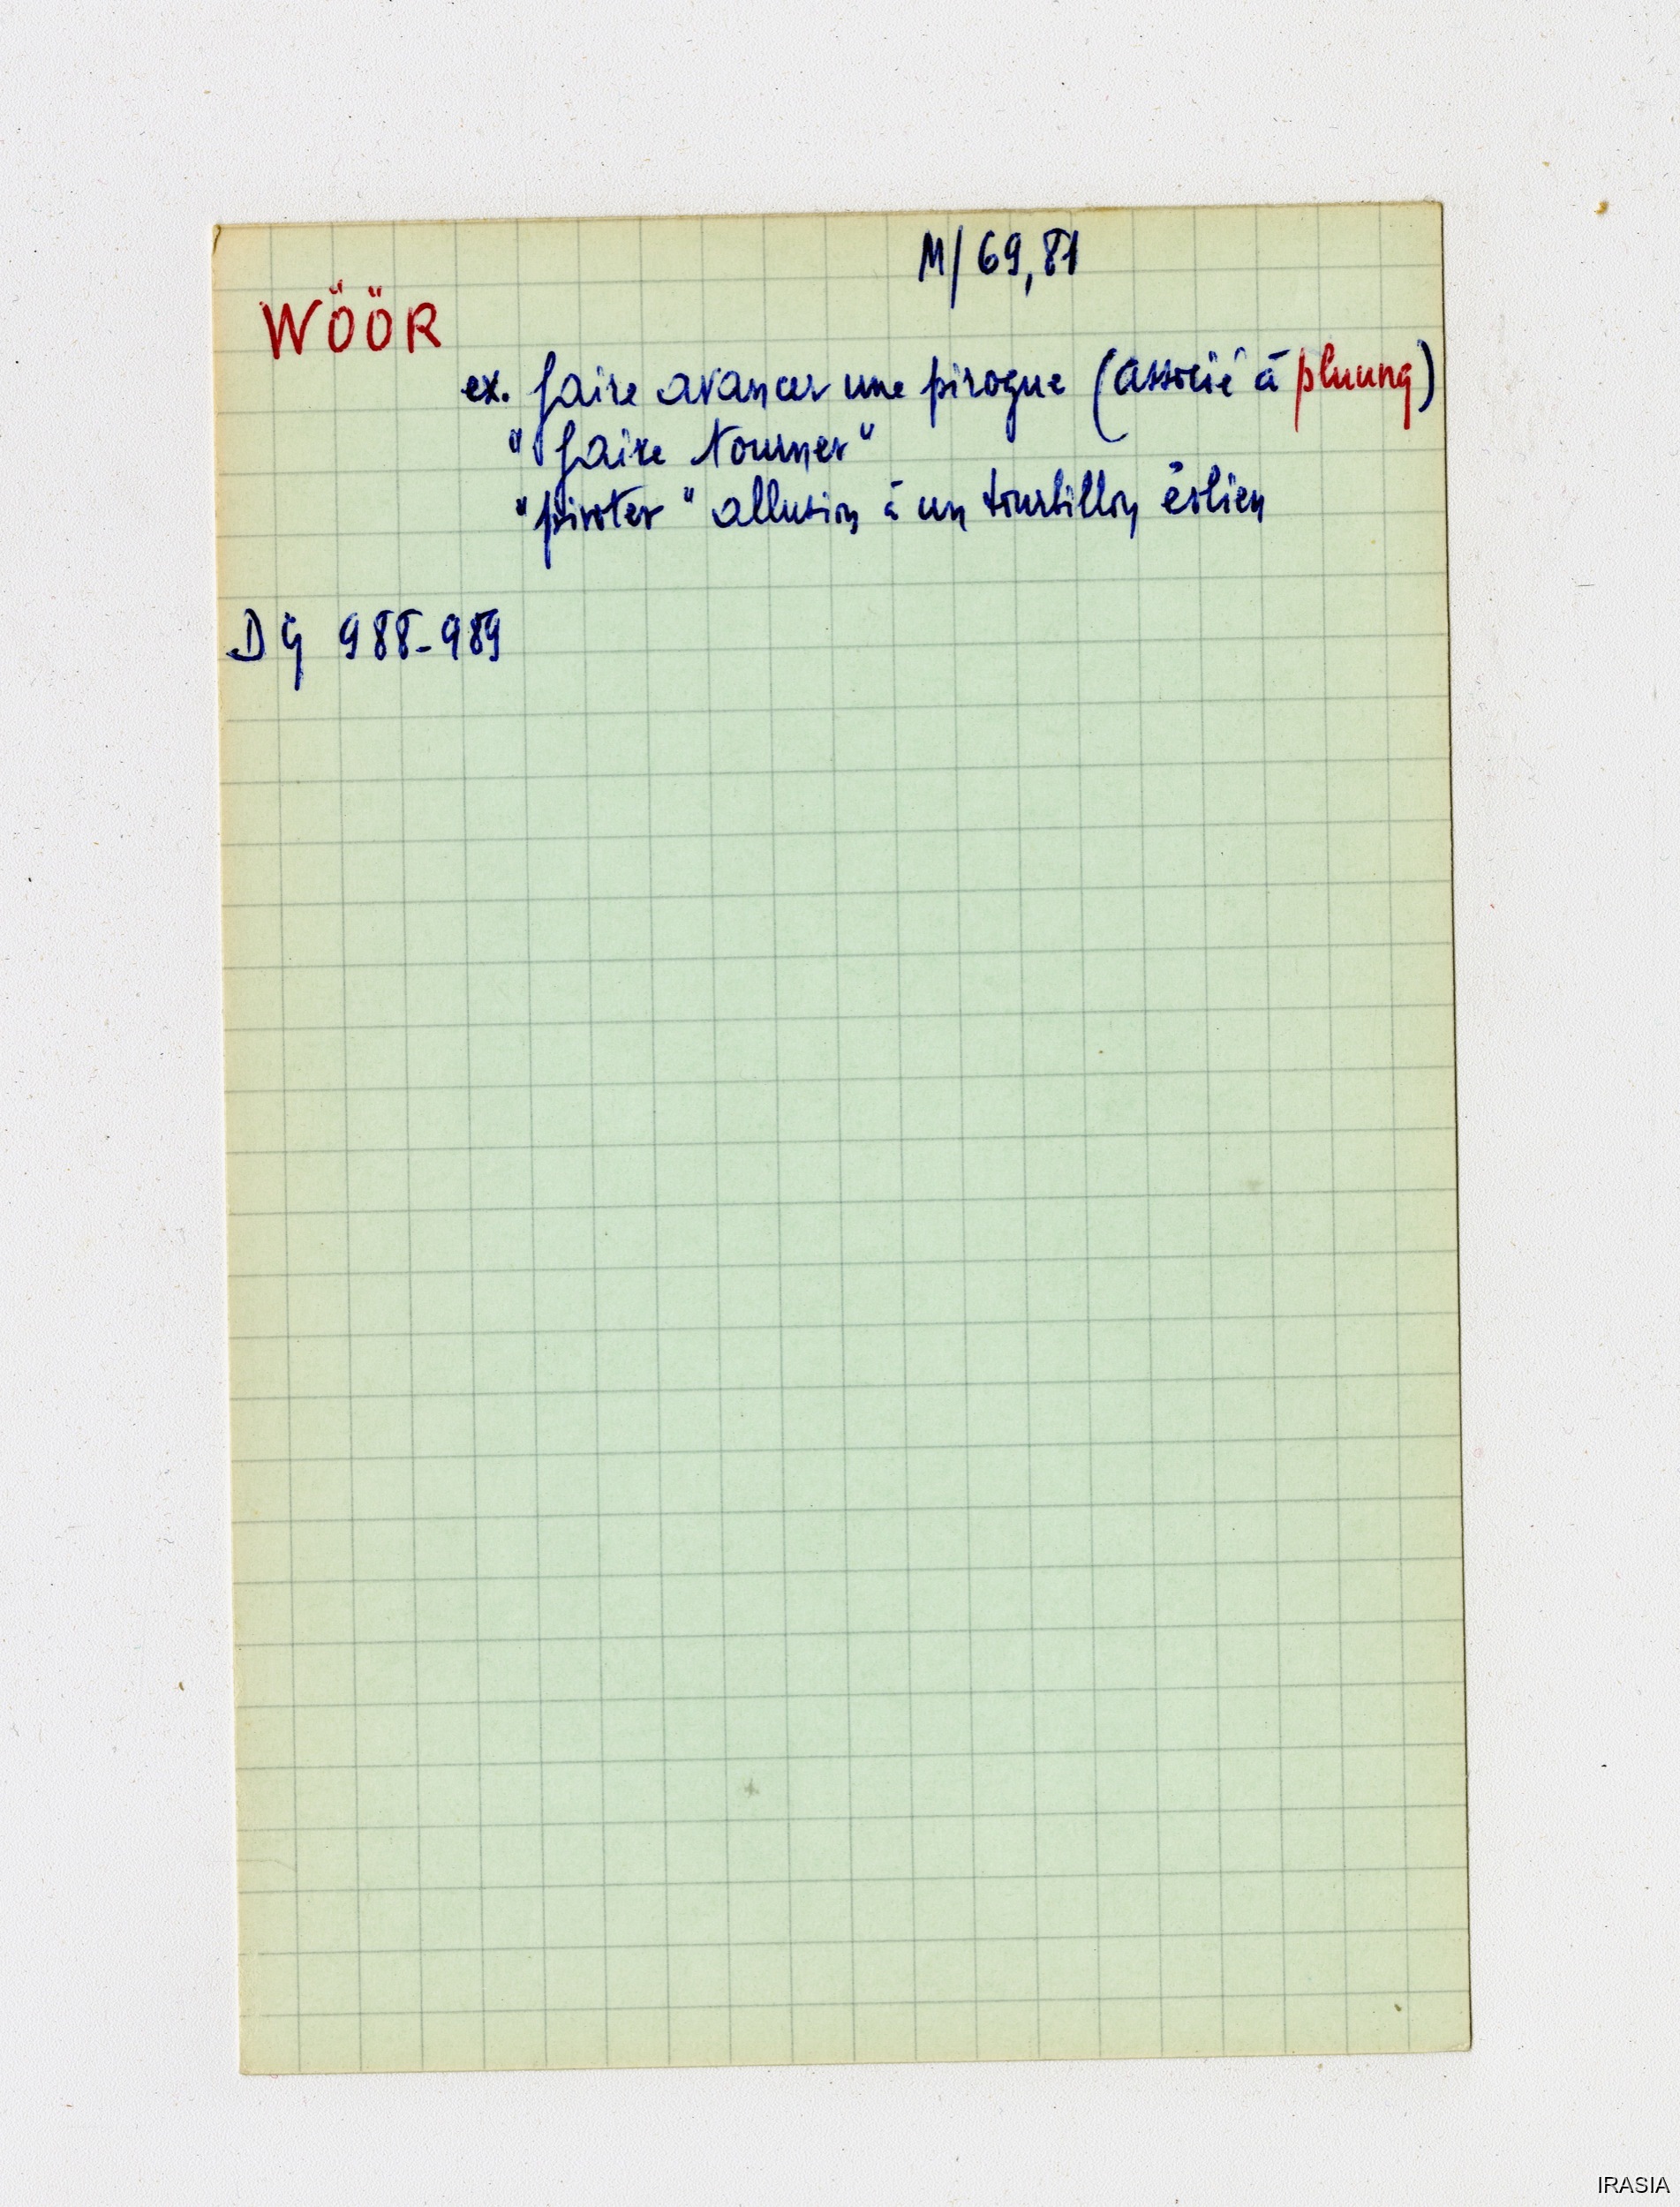 M/69,81
WÖÖR
ex. faire avancer une pirogue (associé à pluung)
"faire tourner"
"pivoter" allusion à un tourbillon éolien
DG 988-989
IRASIA